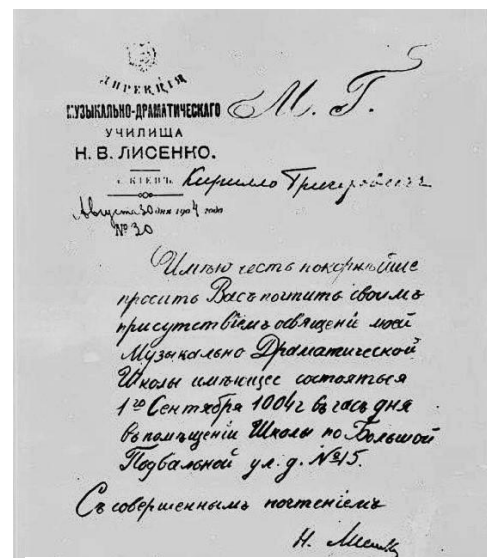 ДИРЕКЦІЯ
МУЗЫКАЛЬНО-ДРАМАТИЧЕСКАГО
УЧИЛИЩА
Н. В. ЛИСЕНКО.
М. Г.
Г. КІЕВЪ.
Кирилло Григоровичъ
Августа 30 дня 1904 года
№ 30
Имѣю честь покорнѣйше
просить Васъ почтить своимъ
присутствіемъ освященіе моей
Музыкально Драматической
Школы имѣющее состояться
1го Сентября 1004 г въ часъ дня
въ помѣщеніи Школы по Большой
Подвальной ул. д. № 15.
Съ совершеннымъ почтеніемъ
Н. Лисенко